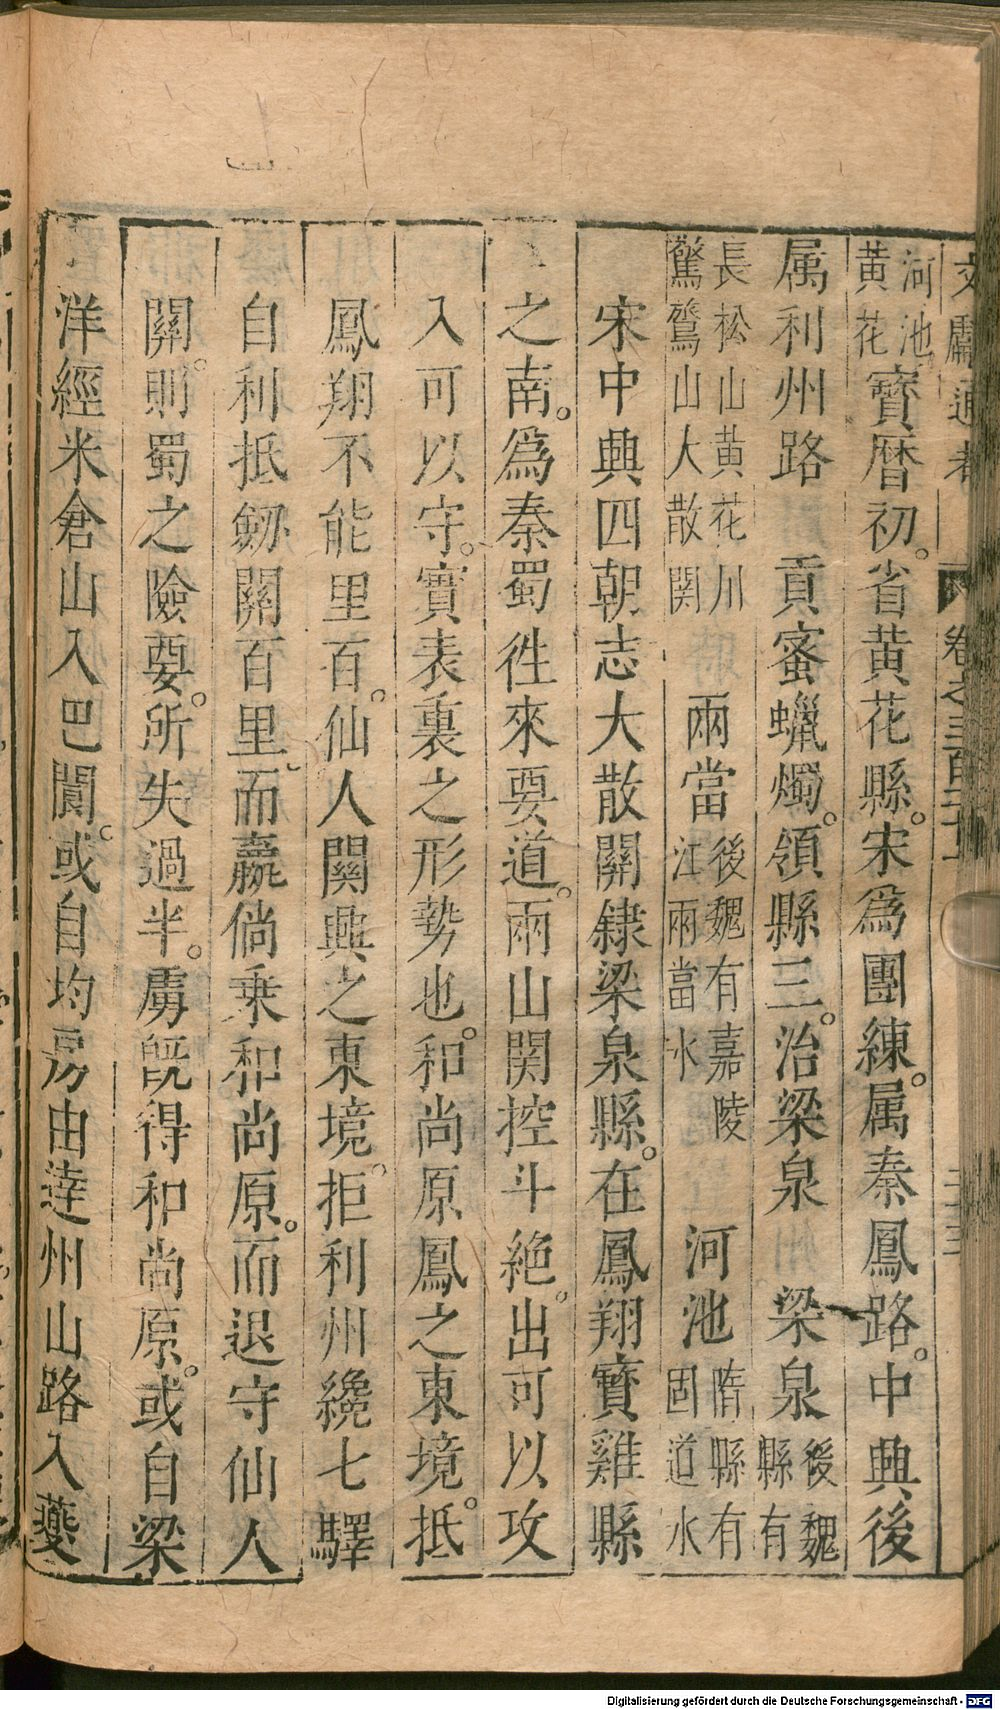 文獻通考 卷之三百二十一 二十三
河池黃花寶曆初。省黃花縣。宋爲團練。属秦鳳路。中興後
属利州路 貢蜜蠟燭。領縣三。治梁泉 梁泉後魏縣有
長松山黃花川驚鷺山大散関 兩當後魏有嘉陵江兩當水 河池隋縣有固道水
宋中興四朝志大散關隷梁泉縣。在鳳翔寶雞縣
之南。爲秦蜀徃來要道。兩山関控斗絶。出可以攻
入可以守。實表裏之形勢也。和尚原鳳之東境。抵
鳳翔不能里百。仙人関興之東境。拒利州纔七驛
自利抵劒關百里而嬴倘乗和尚原。而退守仙人
關。則蜀之險要。所失過半。虜旣得和尚原。或自梁
洋經米倉山入巴閬。或自均房由逹州山路入夔
Digitalisierung gefördert durch die Deutsche Forschungsgemeinschaft - DFG